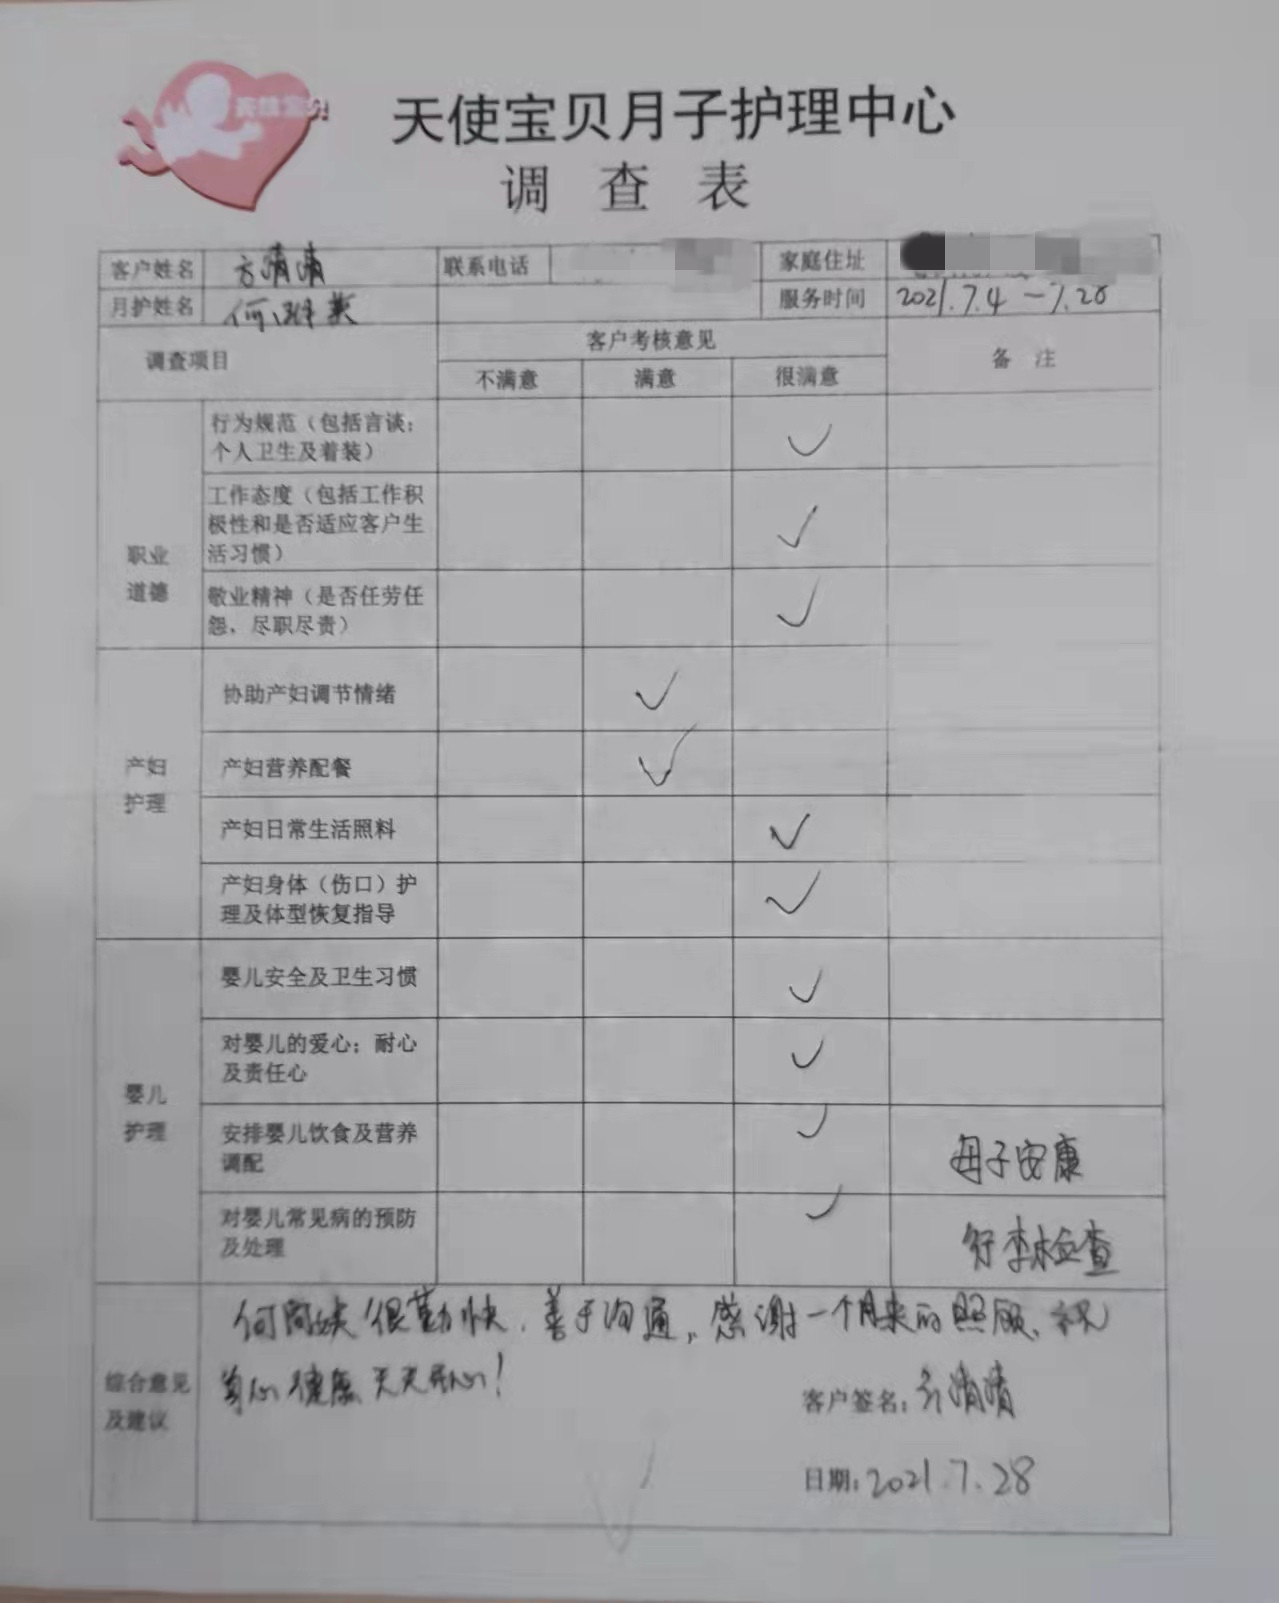 天使宝贝
天使宝贝月子护理中心
调 查 表
客户姓名 方清清 联系电话 家庭住址
月护姓名 何 英 服务时间 2021.7.4 - 7.28
调查项目 客户考核意见 备 注
不满意 满意 很满意
职业
道德
行为规范（包括言谈；
个人卫生及着装） ✓
工作态度（包括工作积
极性和是否适应客户生
活习惯） ✓
敬业精神（是否任劳任
怨，尽职尽责） ✓
产妇
护理
协助产妇调节情绪 ✓
产妇营养配餐 ✓
产妇日常生活照料 ✓
产妇身体（伤口）护
理及体型恢复指导 ✓
婴儿
护理
婴儿安全及卫生习惯 ✓
对婴儿的爱心；耐心
及责任心 ✓
安排婴儿饮食及营养
调配 ✓ 母子安康
对婴儿常见病的预防
及处理 ✓ 行李检查
综合意见
及建议
何阿姨很勤快，善于沟通，感谢一个月来的照顾，祝
身心健康 天天开心！
客户签名：方清清
日期：2021.7.28